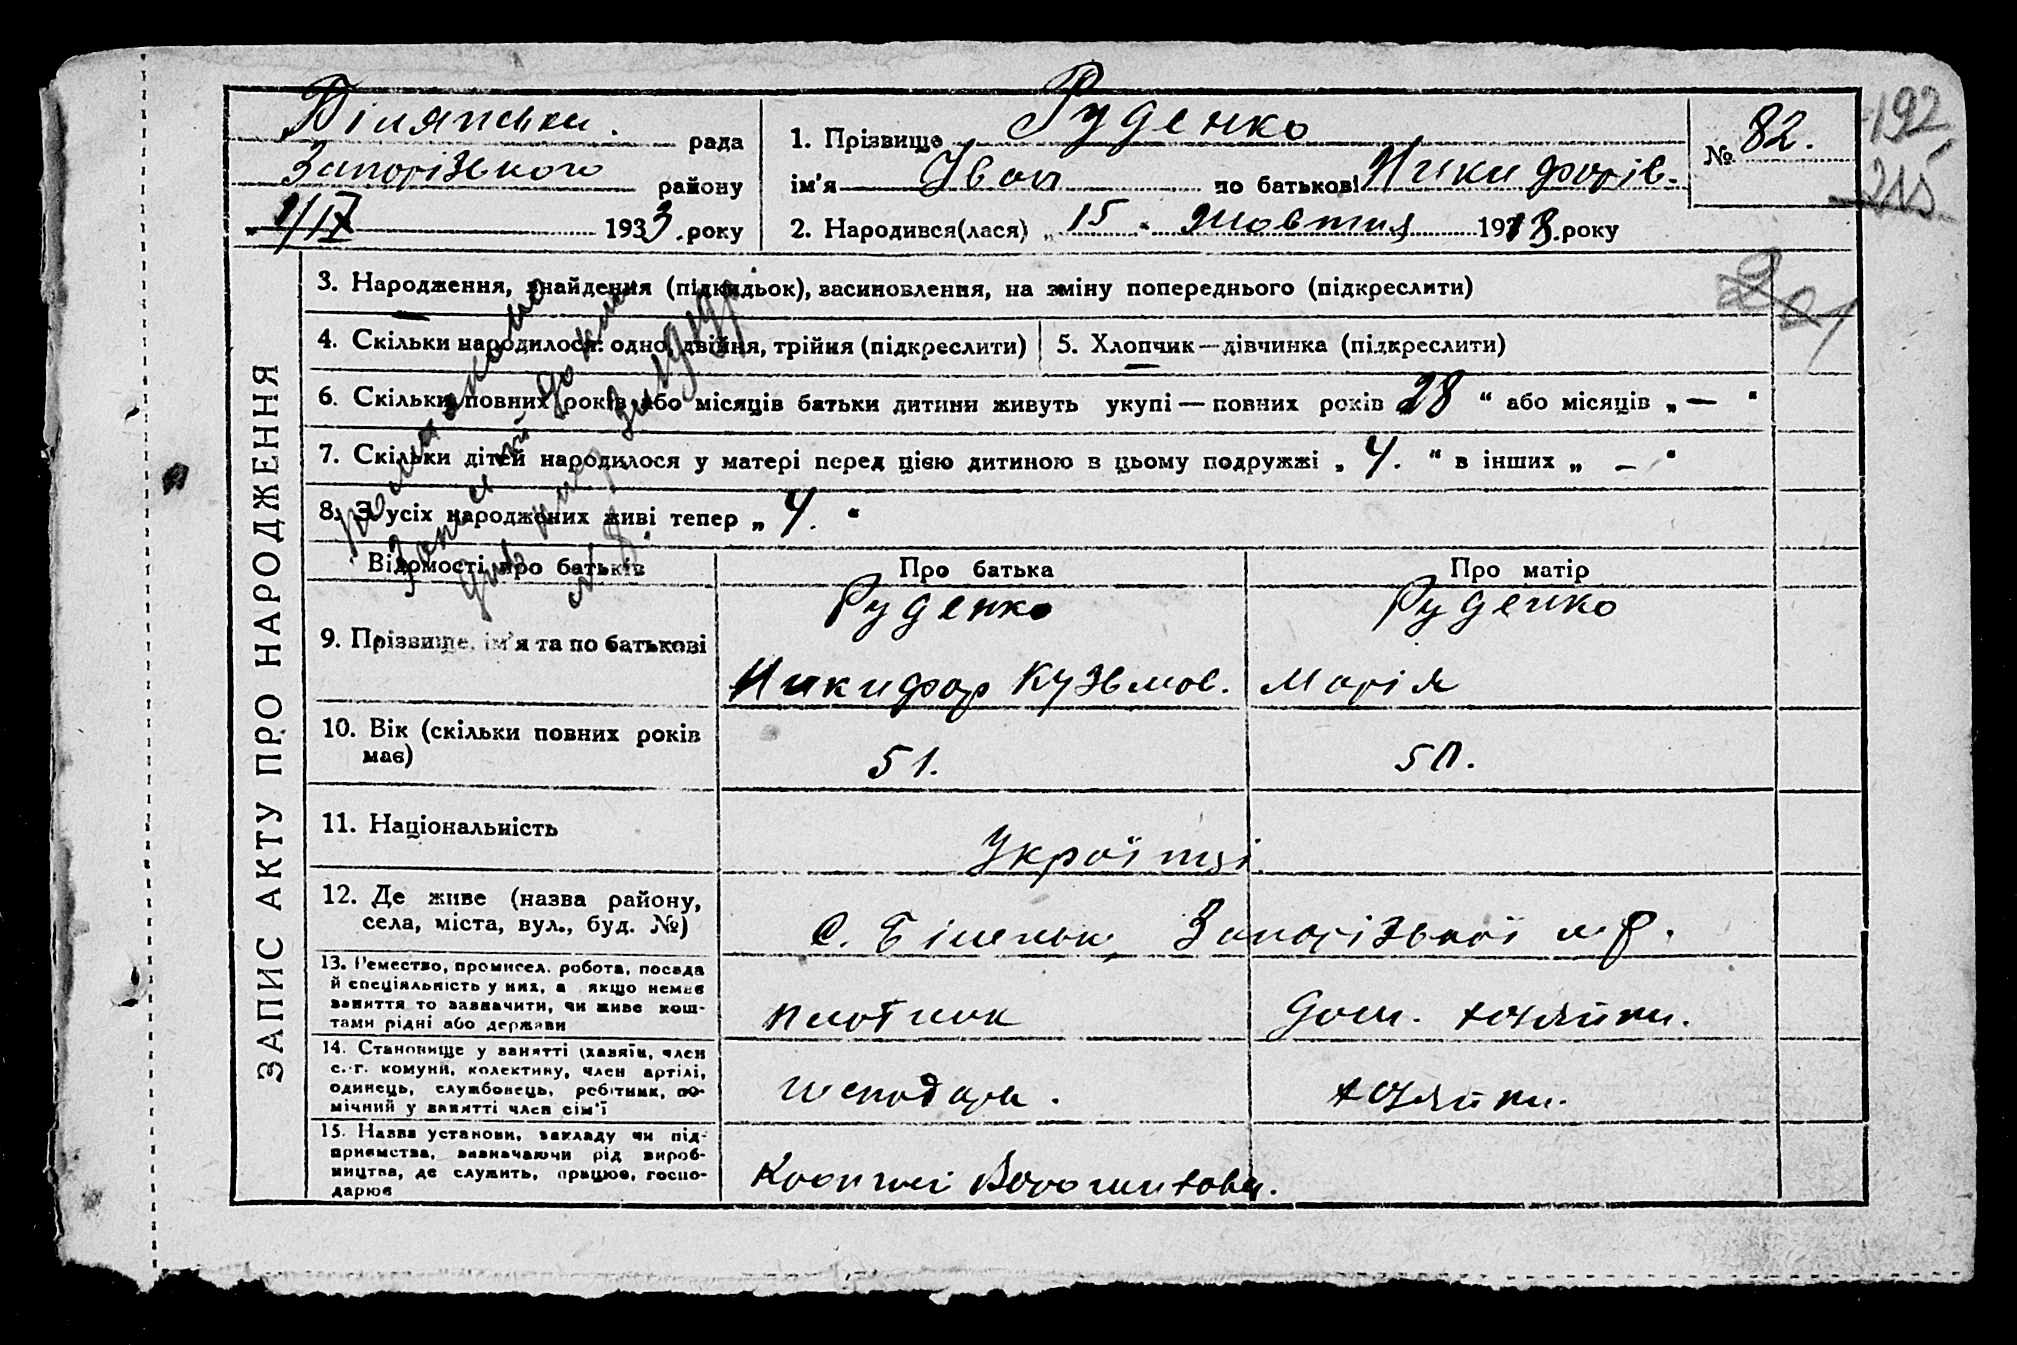 Біляпськи. рада
Запорізького району
„1/IX 1933.року
1. Прізвище Руденко
ім'я Іван по батькові Никифорів.
2. Народився(лася) „15" жовтня 1913.року
№ 82.
192
215
ЗАПИС АКТУ ПРО НАРОДЖЕННЯ
3. Народження, знайдення (підкидьок), засиновлення, на зміну попереднього (підкреслити)
4. Скільки народилося: одно, двійня, трійня (підкреслити)
5. Хлопчик—дівчинка (підкреслити)
6. Скільки повних років або місяців батьки дитини живуть укупі — повних років „28" або місяців „—"
7. Скільки дітей народилося у матері перед цією дитиною в цьому подружжі „4." в інших „—"
8. З усіх народжених живі тепер „4."
Відомості про батьків Про батька Про матір
9. Прізвище, ім'я та по батькові
Руденко Руденко
Никифор Кузьмов. Марія
10. Вік (скільки повних років має)
51. 50.
11. Національність
Українці
12. Де живе (назва району, села, міста, вул., буд. №)
с. Біленьк, Запорізької м р.
13. Ремество, промисел, робота, посада
й спеціяльність у них, а якщо немає
заняття то зазначити, чи живе кош-
тами рідні або держави
плотник дом. хозяйки.
14. Становище у занятті (хазяїн, член
с.-г. комуни, колективу, член артілі,
одинець, службовець, робітник, по-
мічний у занятті член сім'ї
господарь. хозяйки.
15. Назва установи, закладу чи під-
приємства, зазначаючи рід вироб-
ництва, де служить, працює, госпо-
дарює
Колгоспі Ворошилова.